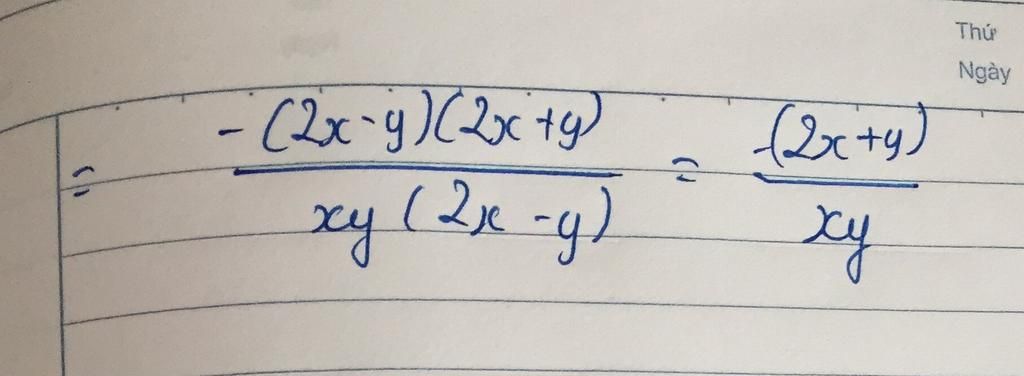 Thứ
Ngày
= -(2x-y)(2x+y) / xy(2x-y) = -(2x+y) / xy